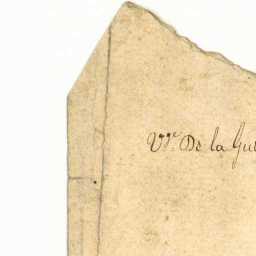 Vve. De la Gui